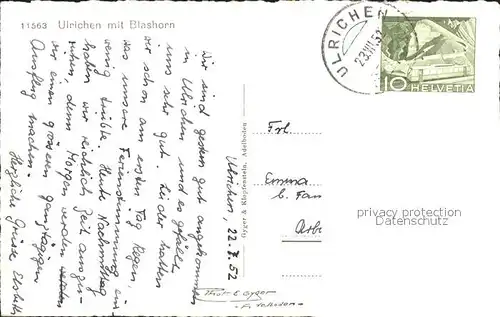 11563 Ulrichen mit Blashorn
Ulrichen, 22.7.52
Wir sind gestern gut angekommen
in Ulrichen und es gefällt
uns sehr gut. Leider hatten
wir schon am ersten Tag Regen,
was unsere Ferienstimmung ein
wenig trübte. Heute Nachmittag
haben wir reichlich Zeit auszu-
ruhen, denn Morgen werden
wir einen grösseren ganztägigen
Ausflug machen.
Herzliche Grüsse Elsbeth
Gyger & Klopfenstein, Adelboden
Phot. E. Gyger
Adelboden
ULRICHEN
23.VII.52
10 HELVETIA
Frl.
Emma
b. Fam
privacy protection
Datenschutz